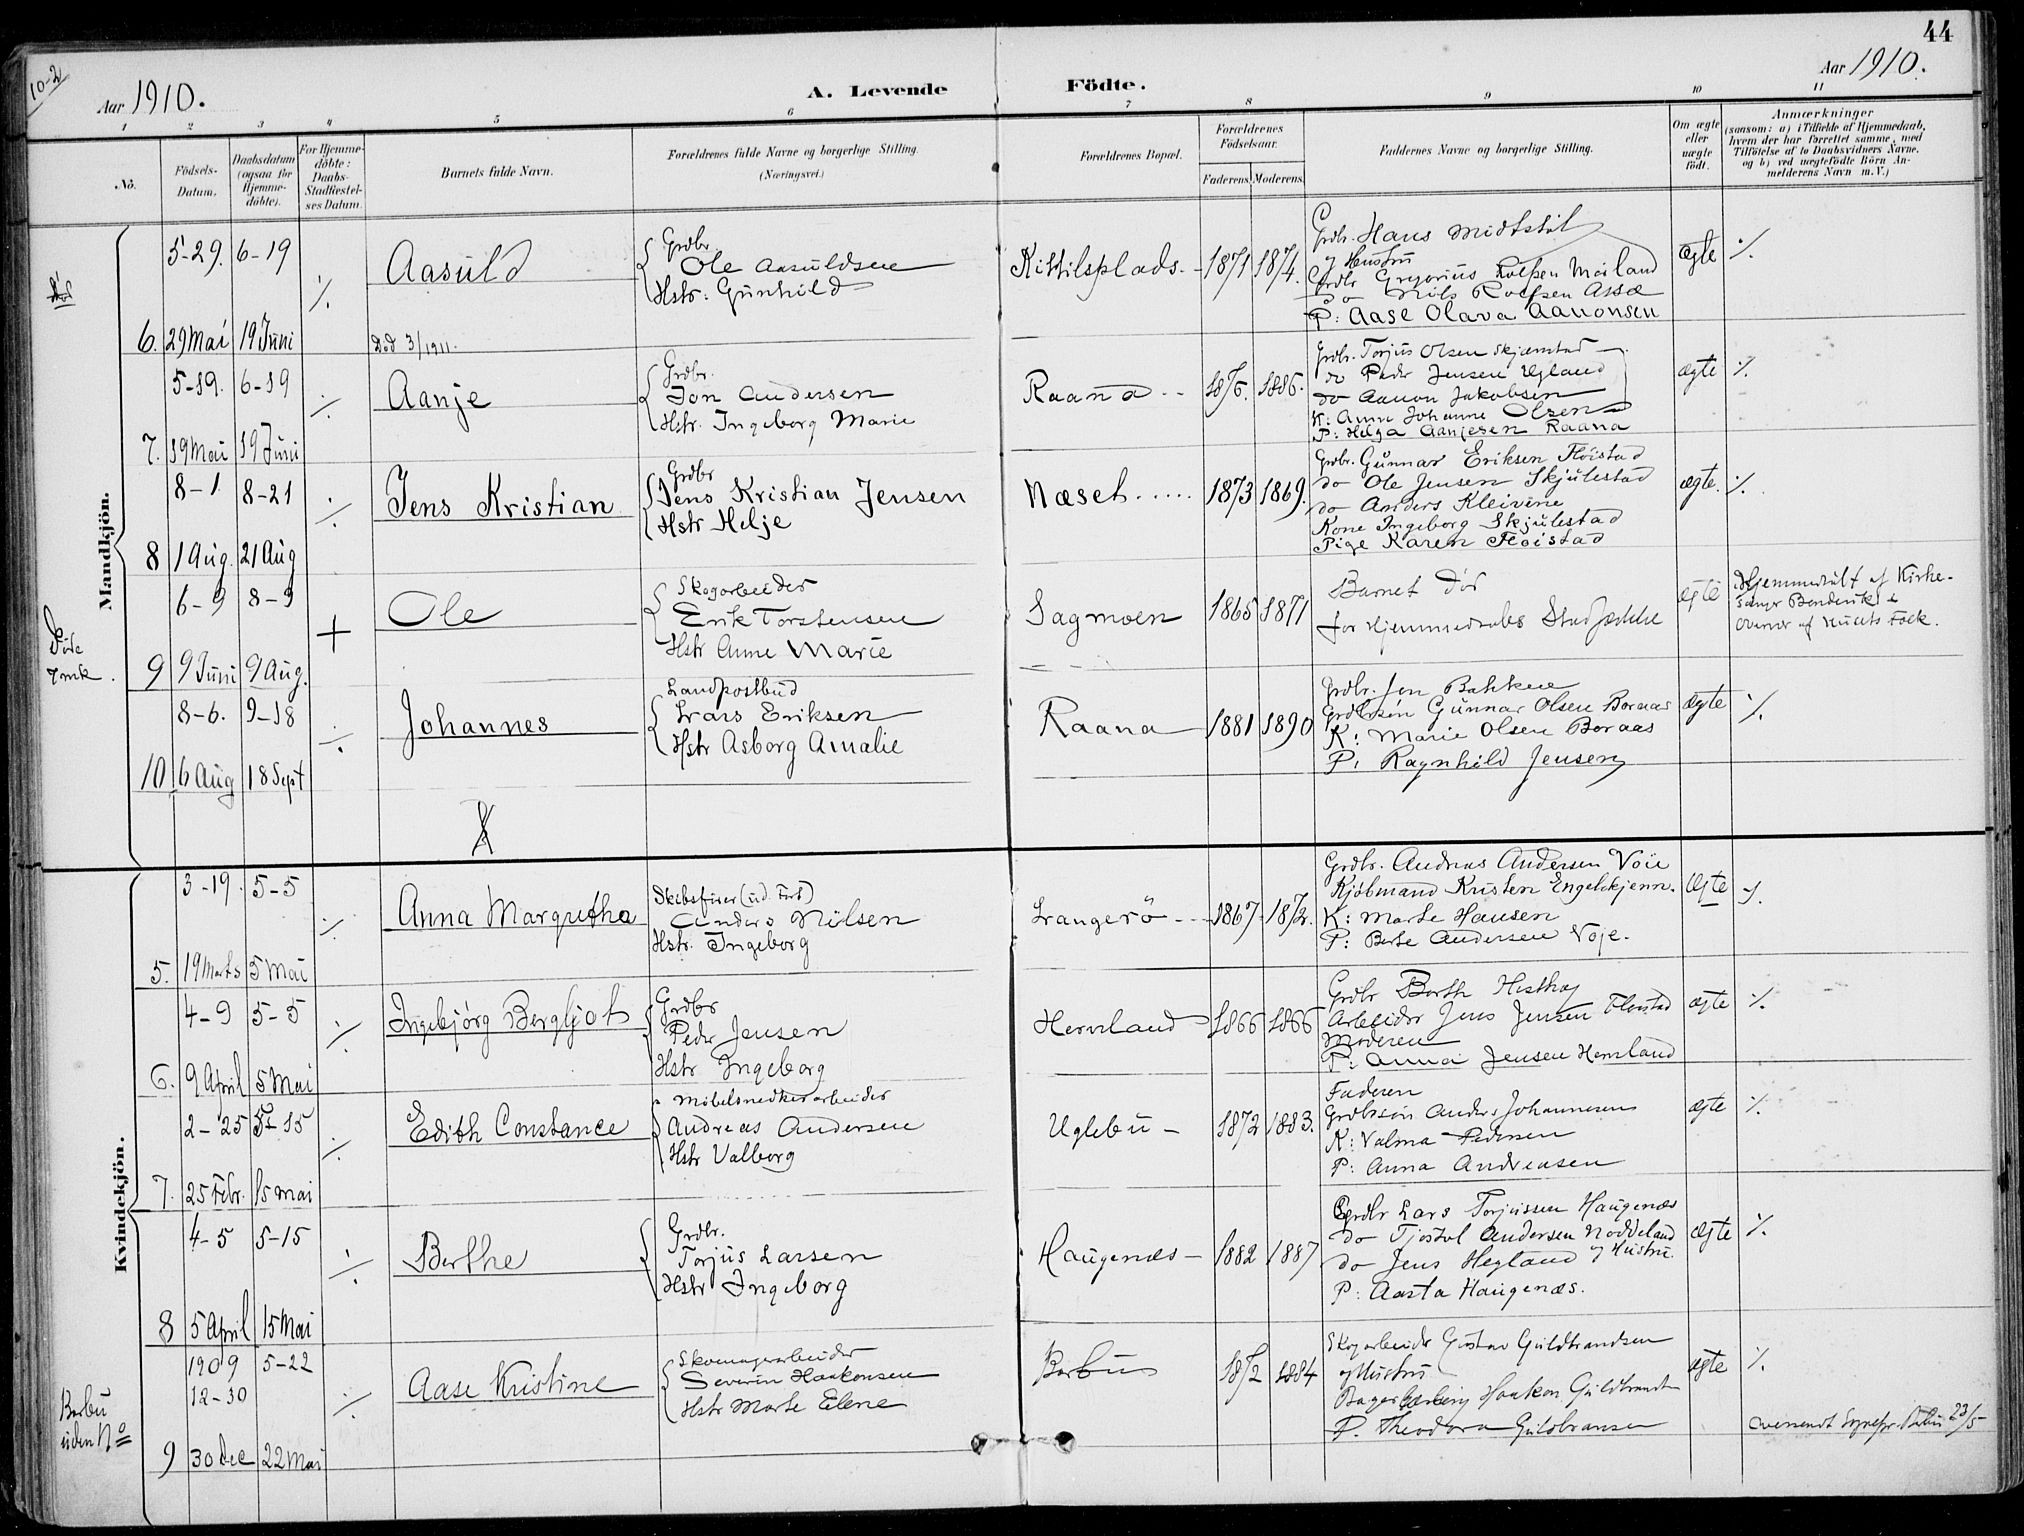 44
10-2
Aar 1910.
A. Levende Födte.
Aar 1910.
1 2 3 4 5 6 7 8 9 10 11
No.
Födsels-Datum.
Daabsdatum (ogsaa for Hjemme-döbte).
For Hjemme-döbte: Daabs-Stadfæstel-ses Datum.
Barnets fulde Navn.
Forældrenes fulde Navne og borgerlige Stilling.
(Næringsvei.)
Forældrenes Bopæl.
Forældrenes Födselsaar.
Faderens. Moderens.
Faddernes Navne og borgerlige Stilling.
Om ægte eller uægte födt.
Anmærkninger
(saasom: a) i Tilfælde af Hjemmedaab,
hvem der har forrettet samme, med
Tilföielse af to Daabsvidners Navne,
og b) ved uægtefödte Börn An-
melderens Navn m. V.)
Mandkjön.
död
5-29. 6-19
6. 29 Mai 19 Juni
÷
Aasuld
Död 3/1911.
Grdbr.
Ole Aasuldsen
Hstr: Gunhild
Kittilsplads. 1871 1874.
Grdbr. Hans Midtstöl
og Hustru
Grdbr Gregorius Rolfsen Moiland
do Nils Rolfsen Assæ
P: Aase Olava Aanonsen
ægte ٪
5-19. 6-19
7. 19 Mai 19 Juni
÷
Aanje
Grdbr.
Jon Andersen
Hstr. Ingeborg Marie
Raana 1876. 1886.
Grdbr. Torjus Olsen Skjæmstad
do Peder Jensen Ugland
do Aanon Jakobsen
K: Anna Johanne Olsen
P: Helga Aanjesen Raana
ægte ٪
8-1 8-21
8 1 Aug. 21 Aug
÷
Jens Kristian
Grdbr
Jens Kristian Jensen
Hstr Helje
Næset 1873 1869.
Grdbr. Gunnar Eriksen Flöistad
do Ole Jensen Skjulestad
do Anders Kleivene
Kone Ingeborg Skjulestad
Pige Karen Flöistad
ægte. ٪
6-9 8-9
9 9 Juni 9 Aug.
+
Ole
Skogarbeider
Erik Torstensen
Hstr Anne Marie
Sagmoen 1865 1871
Barnet Död
for Hjemmedaabs Stadfæstelse
ægte
Hjemmedöbt af Kirke-
sanger
8-6. 9-18
10 6 Aug 18 Sept
÷
Johannes
Landpostbud
Lars Eriksen
Hstr Asborg Amalie
Raana 1881 1890
Grdbr. Jon Bakken
Grdbrsön Gunnar Olsen Boraas
K: Marie Olsen Boraas
P: Ragnhild Jensen
ægte ٪
Kvindekjön.
3-19. 5-5
5. 19 Marts 5 Mai
÷
Anna Margretha
Skibsförer (ud. Fart)
Anders Nilsen
Hstr. Ingeborg
Langerö 1867 1872.
Grdbr. Andreas Andersen Vöie
Kjöbmand Kristen Engelskjenn.
K: Marte Hansen
P: Berte Andersen Voje.
Ægte ٪
4-9 5-5
6. 9 April 5 Mai
÷
Ingebjörg Bergljot
Grdbr
Peder Jensen
Hstr Ingeborg
Hernland 1866 1866
Grdbr Berth Hesthag
Arbeider Jens Jensen Floistad
Moderen
P: Anna Jensen Hernland
ægte ٪
2-25 5-15
7. 25 Febr. 15 Mai
÷
Edith Constance
Möbelsnedkerarbeider
Andreas Andersen
Hstr Valborg
Uglebu 1872 1883.
Faderen
Grdbrsön Anders Johannesen
K: Valma Pedersen
P: Anna Andreasen
ægte ٪
4-5 5-15
8 5 April 15 Mai
÷
Berthe
Grdbr.
Torjus Larsen
Hstr Ingeborg
Haugenæs 1882 1887
Grdbr Lars Torjussen Haugenæs
do Tjöstol Andersen Noddeland
do Jens Hegland og Hustru.
P: Aasta Haugenæs.
ægte ٪
Barbu
uden No
1909 5-22
12-30
9 30 Dec 22 Mai
÷
Aase Kristine
Skomagerarbeider
Severin Haakonsen
Hstr Marte Elene
Barbu 1872 1884
Skogarbeider Gustav Guldbrandsen
og Hustru
Bager Haakon Guldbrandsen
P. Theodora Guldbransen
ægte ٪
oversendt Sognepr. Barbu 23/5